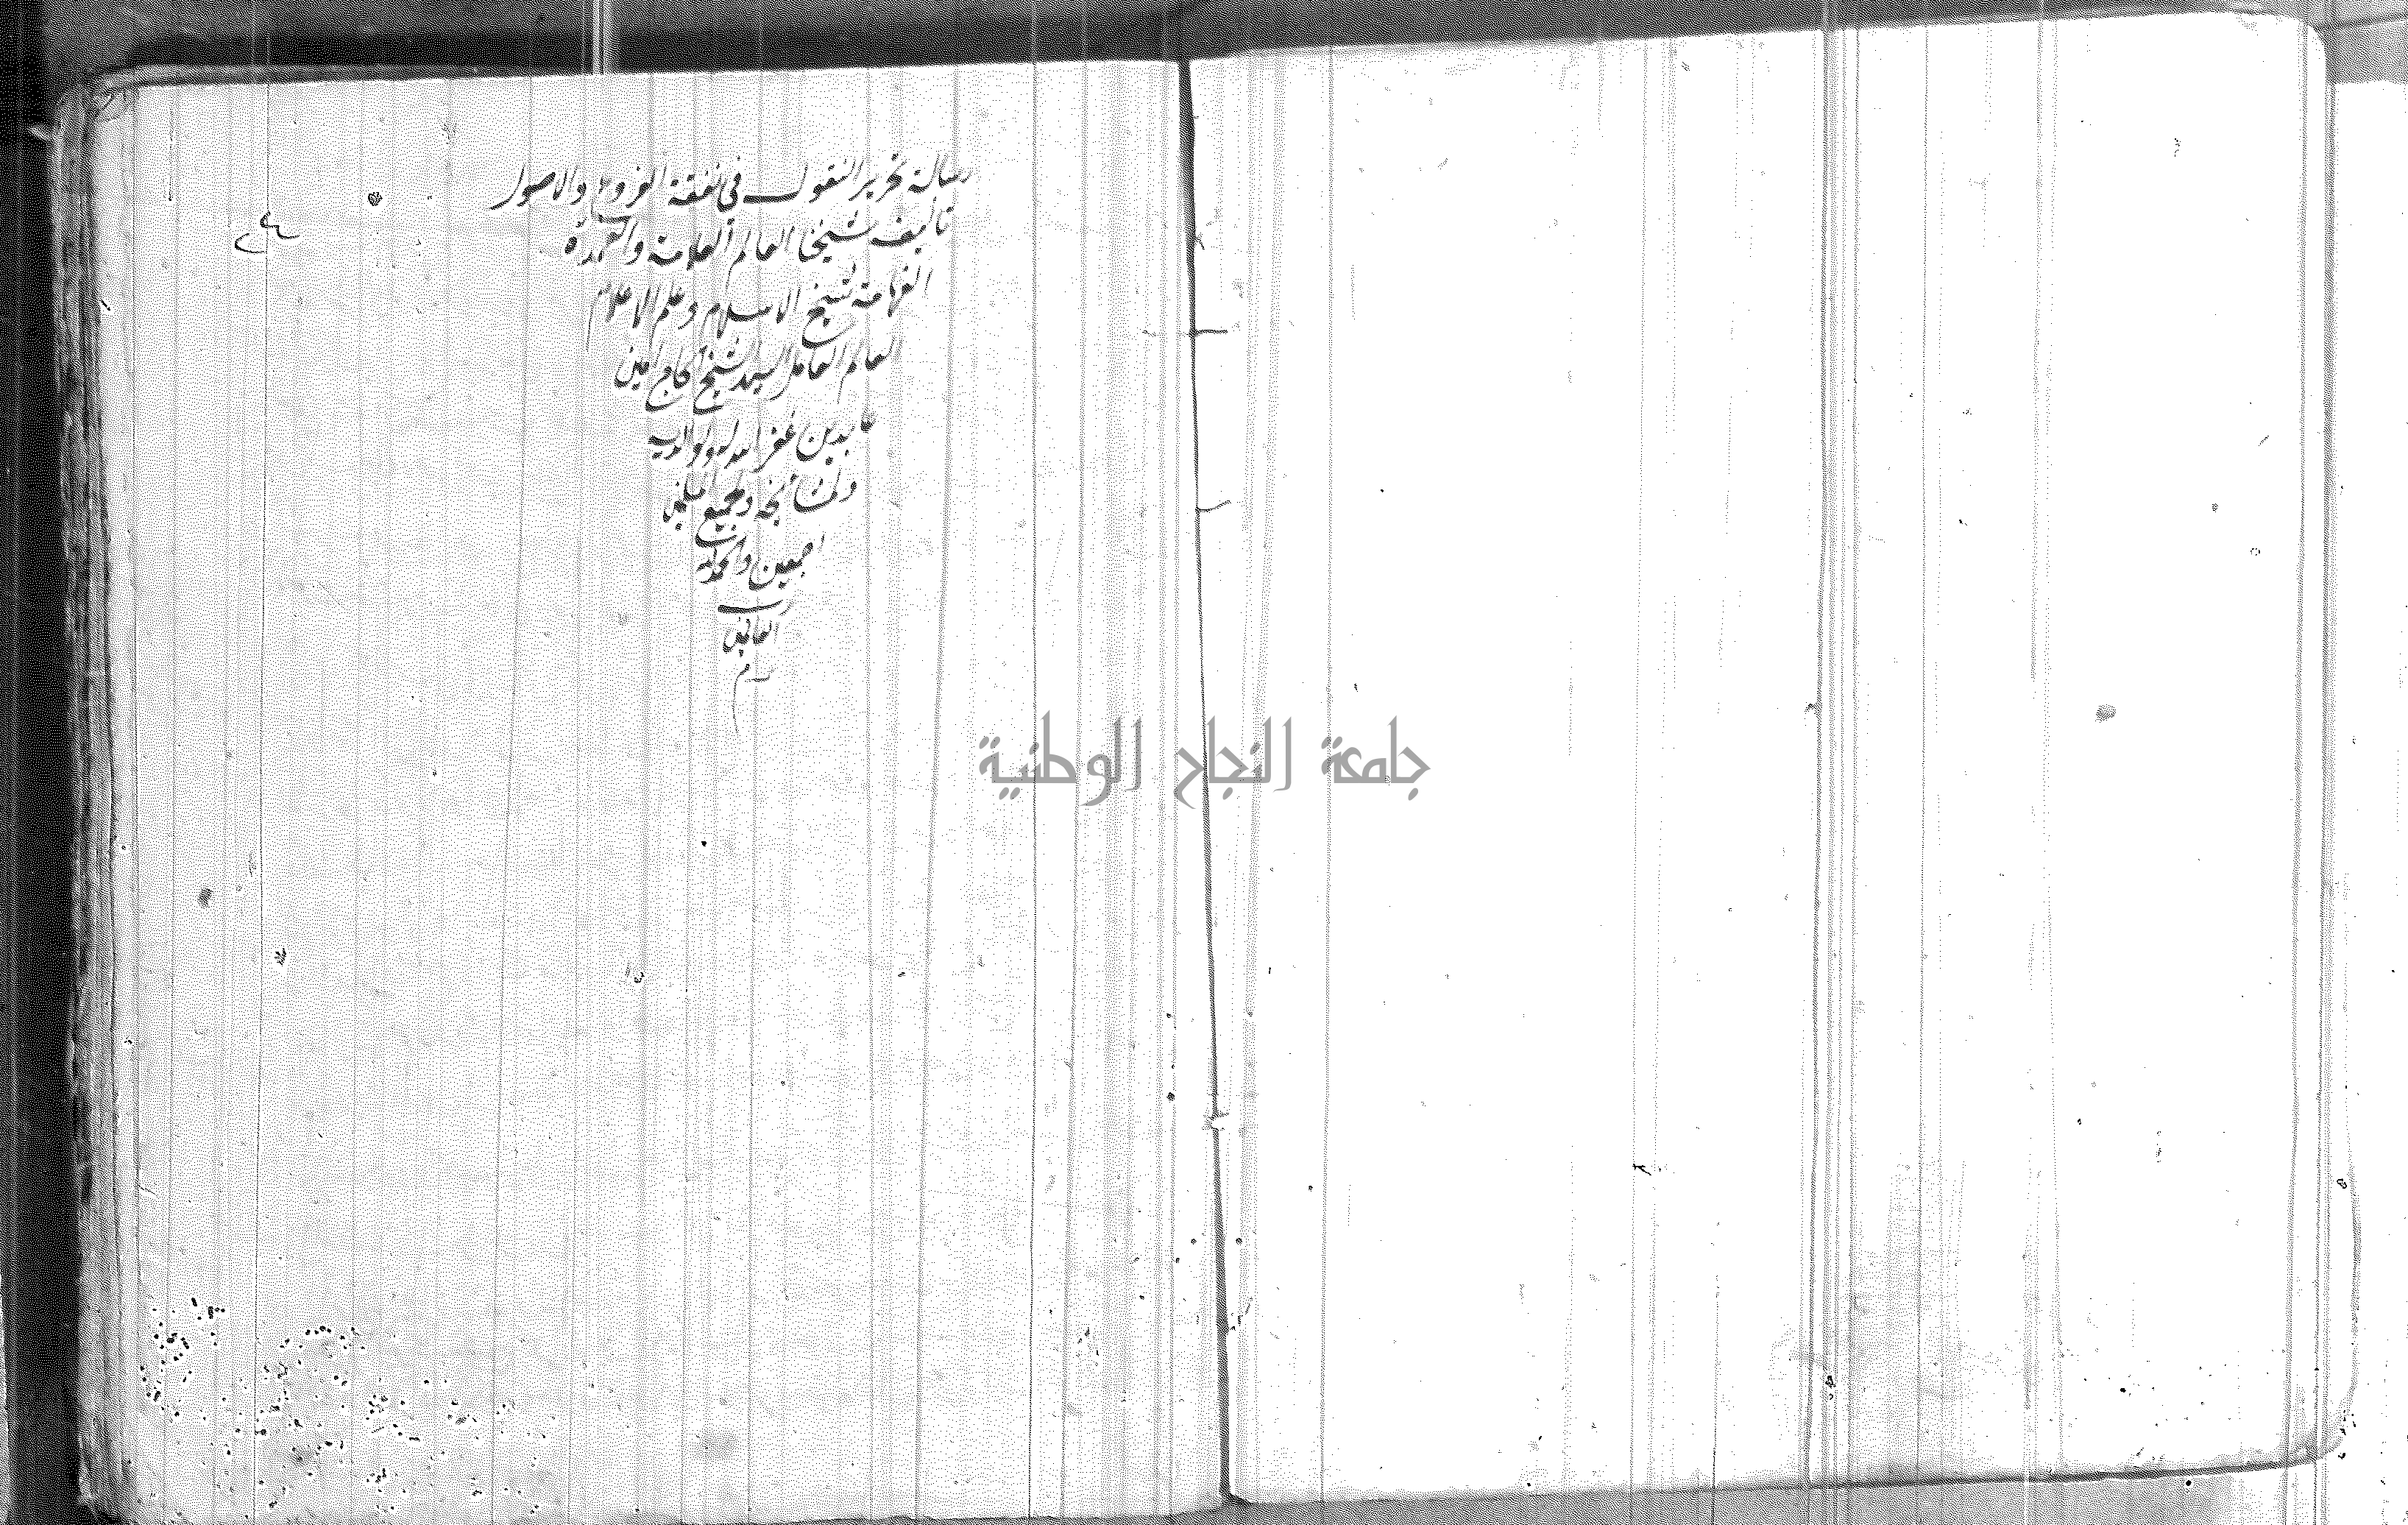 رسالة تحرير النقول في نفقة الفروع والاصول
تاليف شيخنا العالم العلامة والعمدة
الفهامة شيخ الاسلام وعلم الاعلام
العالم العامل السيد الشيخ محمد امين
عابدين غفر الله له ولوالديه
ولمشائخه ولجميع المسلمين
اجمعين والحمد لله
رب
العالمين
جامعة النجاح الوطنية